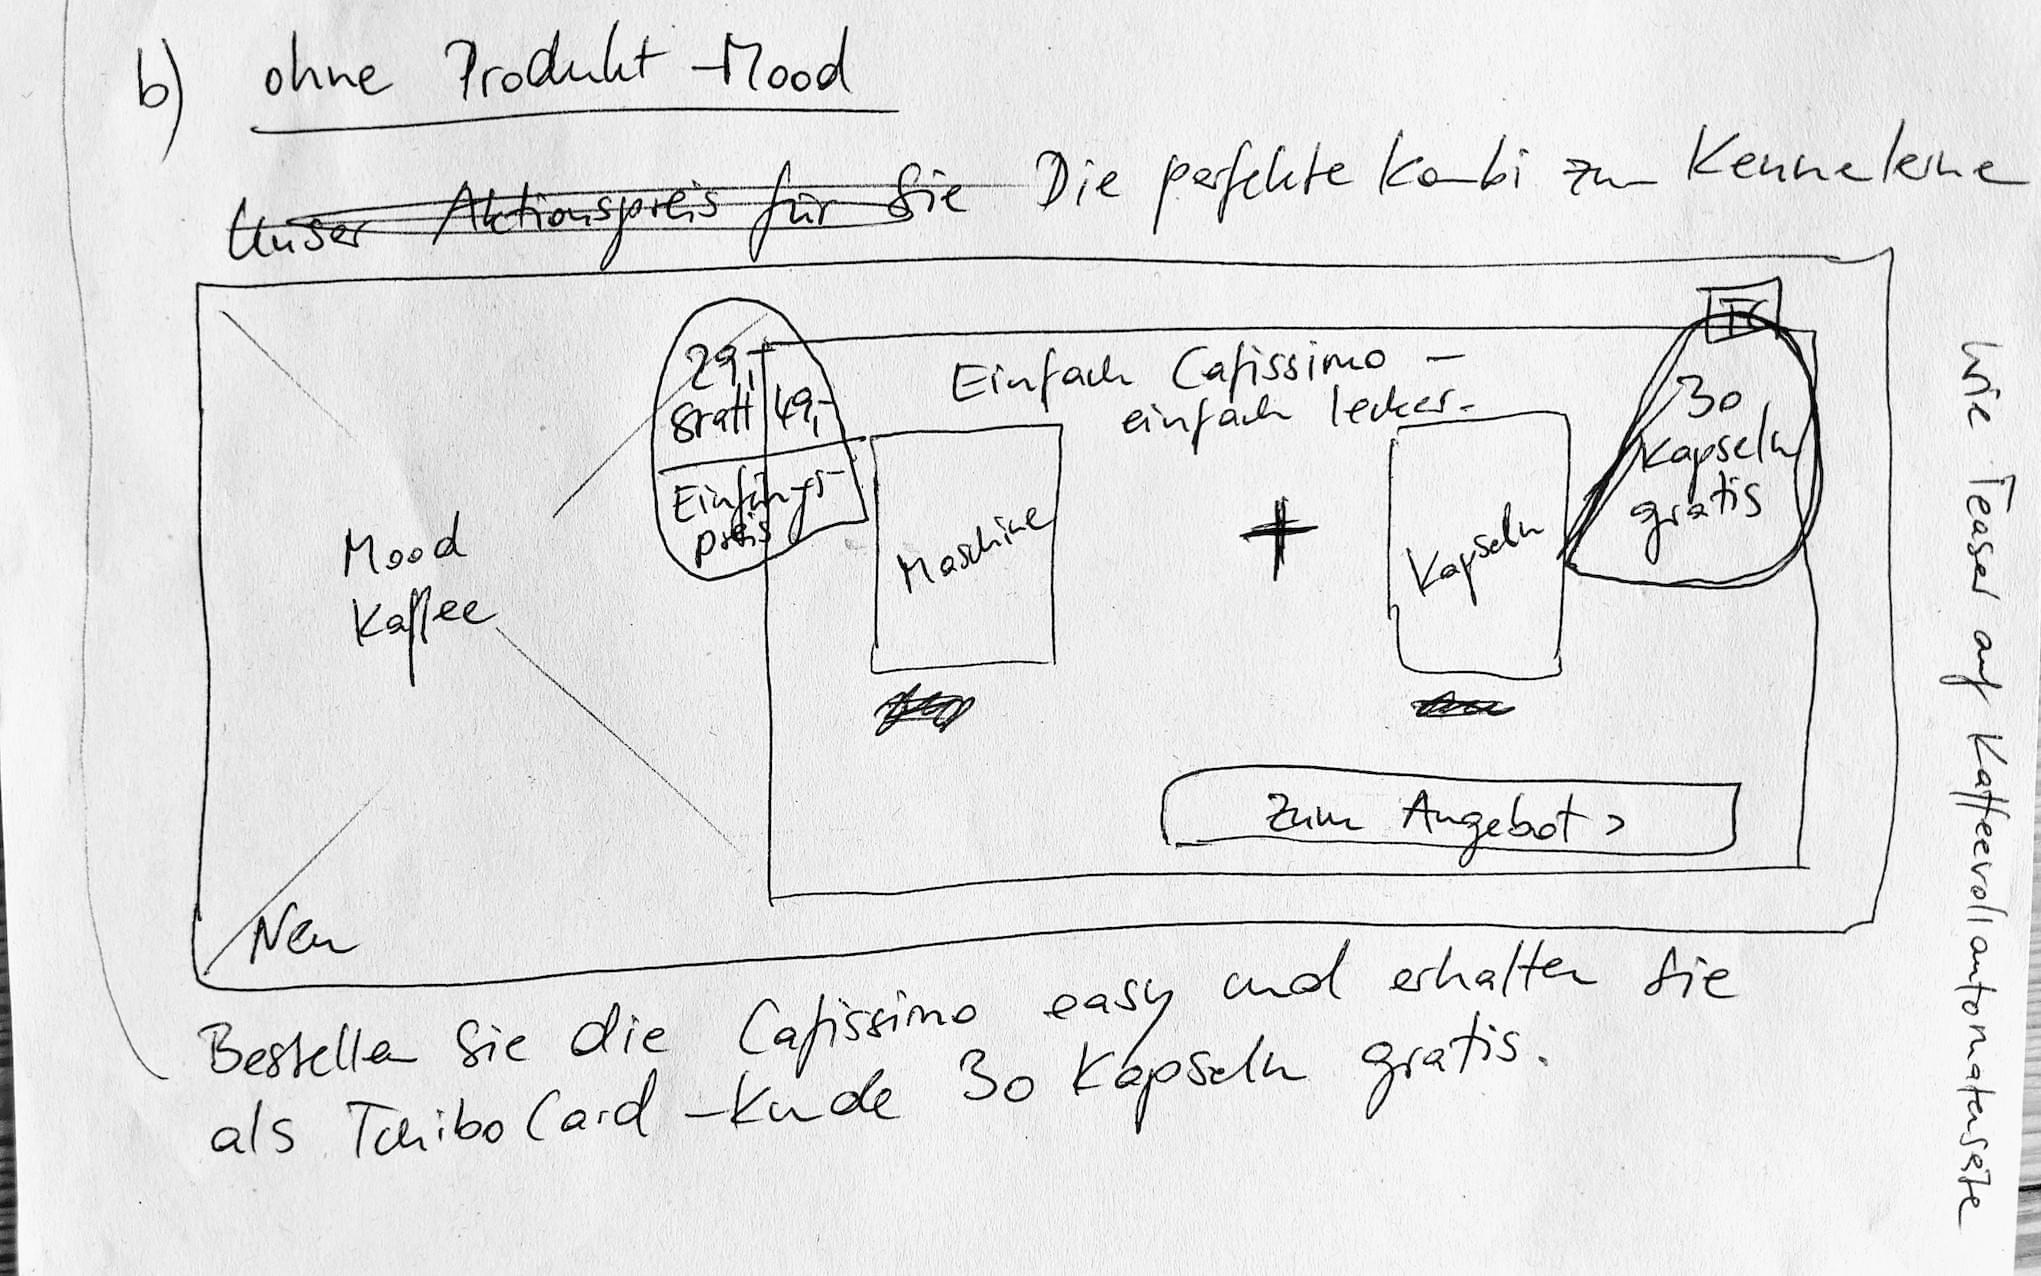 b) ohne Produkt-Mood
Unser Aktionspreis für Sie Die perfekte Kombi zum Kennenlernen
TC
29,-
statt 49,-
Einführungs-
preis
Einfach Cafissimo –
einfach lecker.
30
Kapseln
gratis
Mood
Kaffee
Maschine
+
Kapseln
Zum Angebot >
Neu
Bestellen Sie die Cafissimo easy und erhalten Sie
als TchiboCard-Kunde 30 Kapseln gratis.
wie Teaser auf Kaffeevollautomatenseite